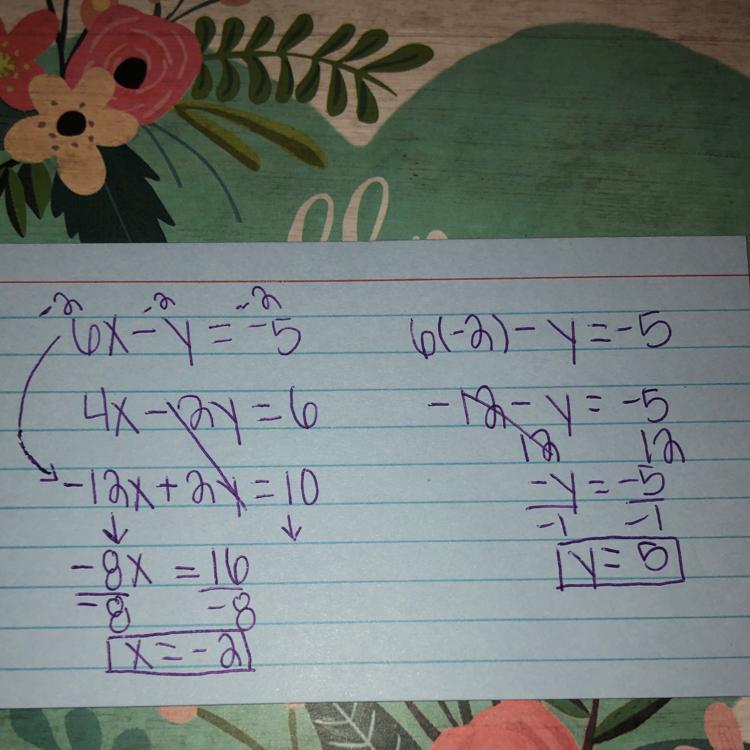 -2 -2 -2
6x - y = -5
4x - 2y = 6
-12x + 2y = 10
-8x = 16
-8 -8
x = -2
6(-2) - y = -5
-12 - y = -5
12 12
-y = -5
-1 -1
y = 5